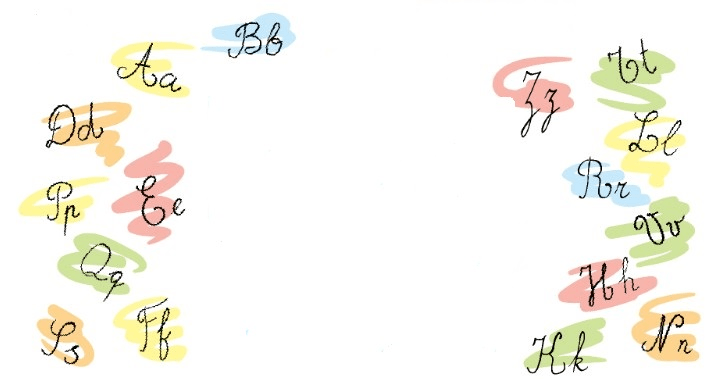 Bb
Aa
Dd
Ee
Pp
Qq
Ff
Ss
Tt
Zz
Ll
Rr
Vv
Hh
Nn
Kk